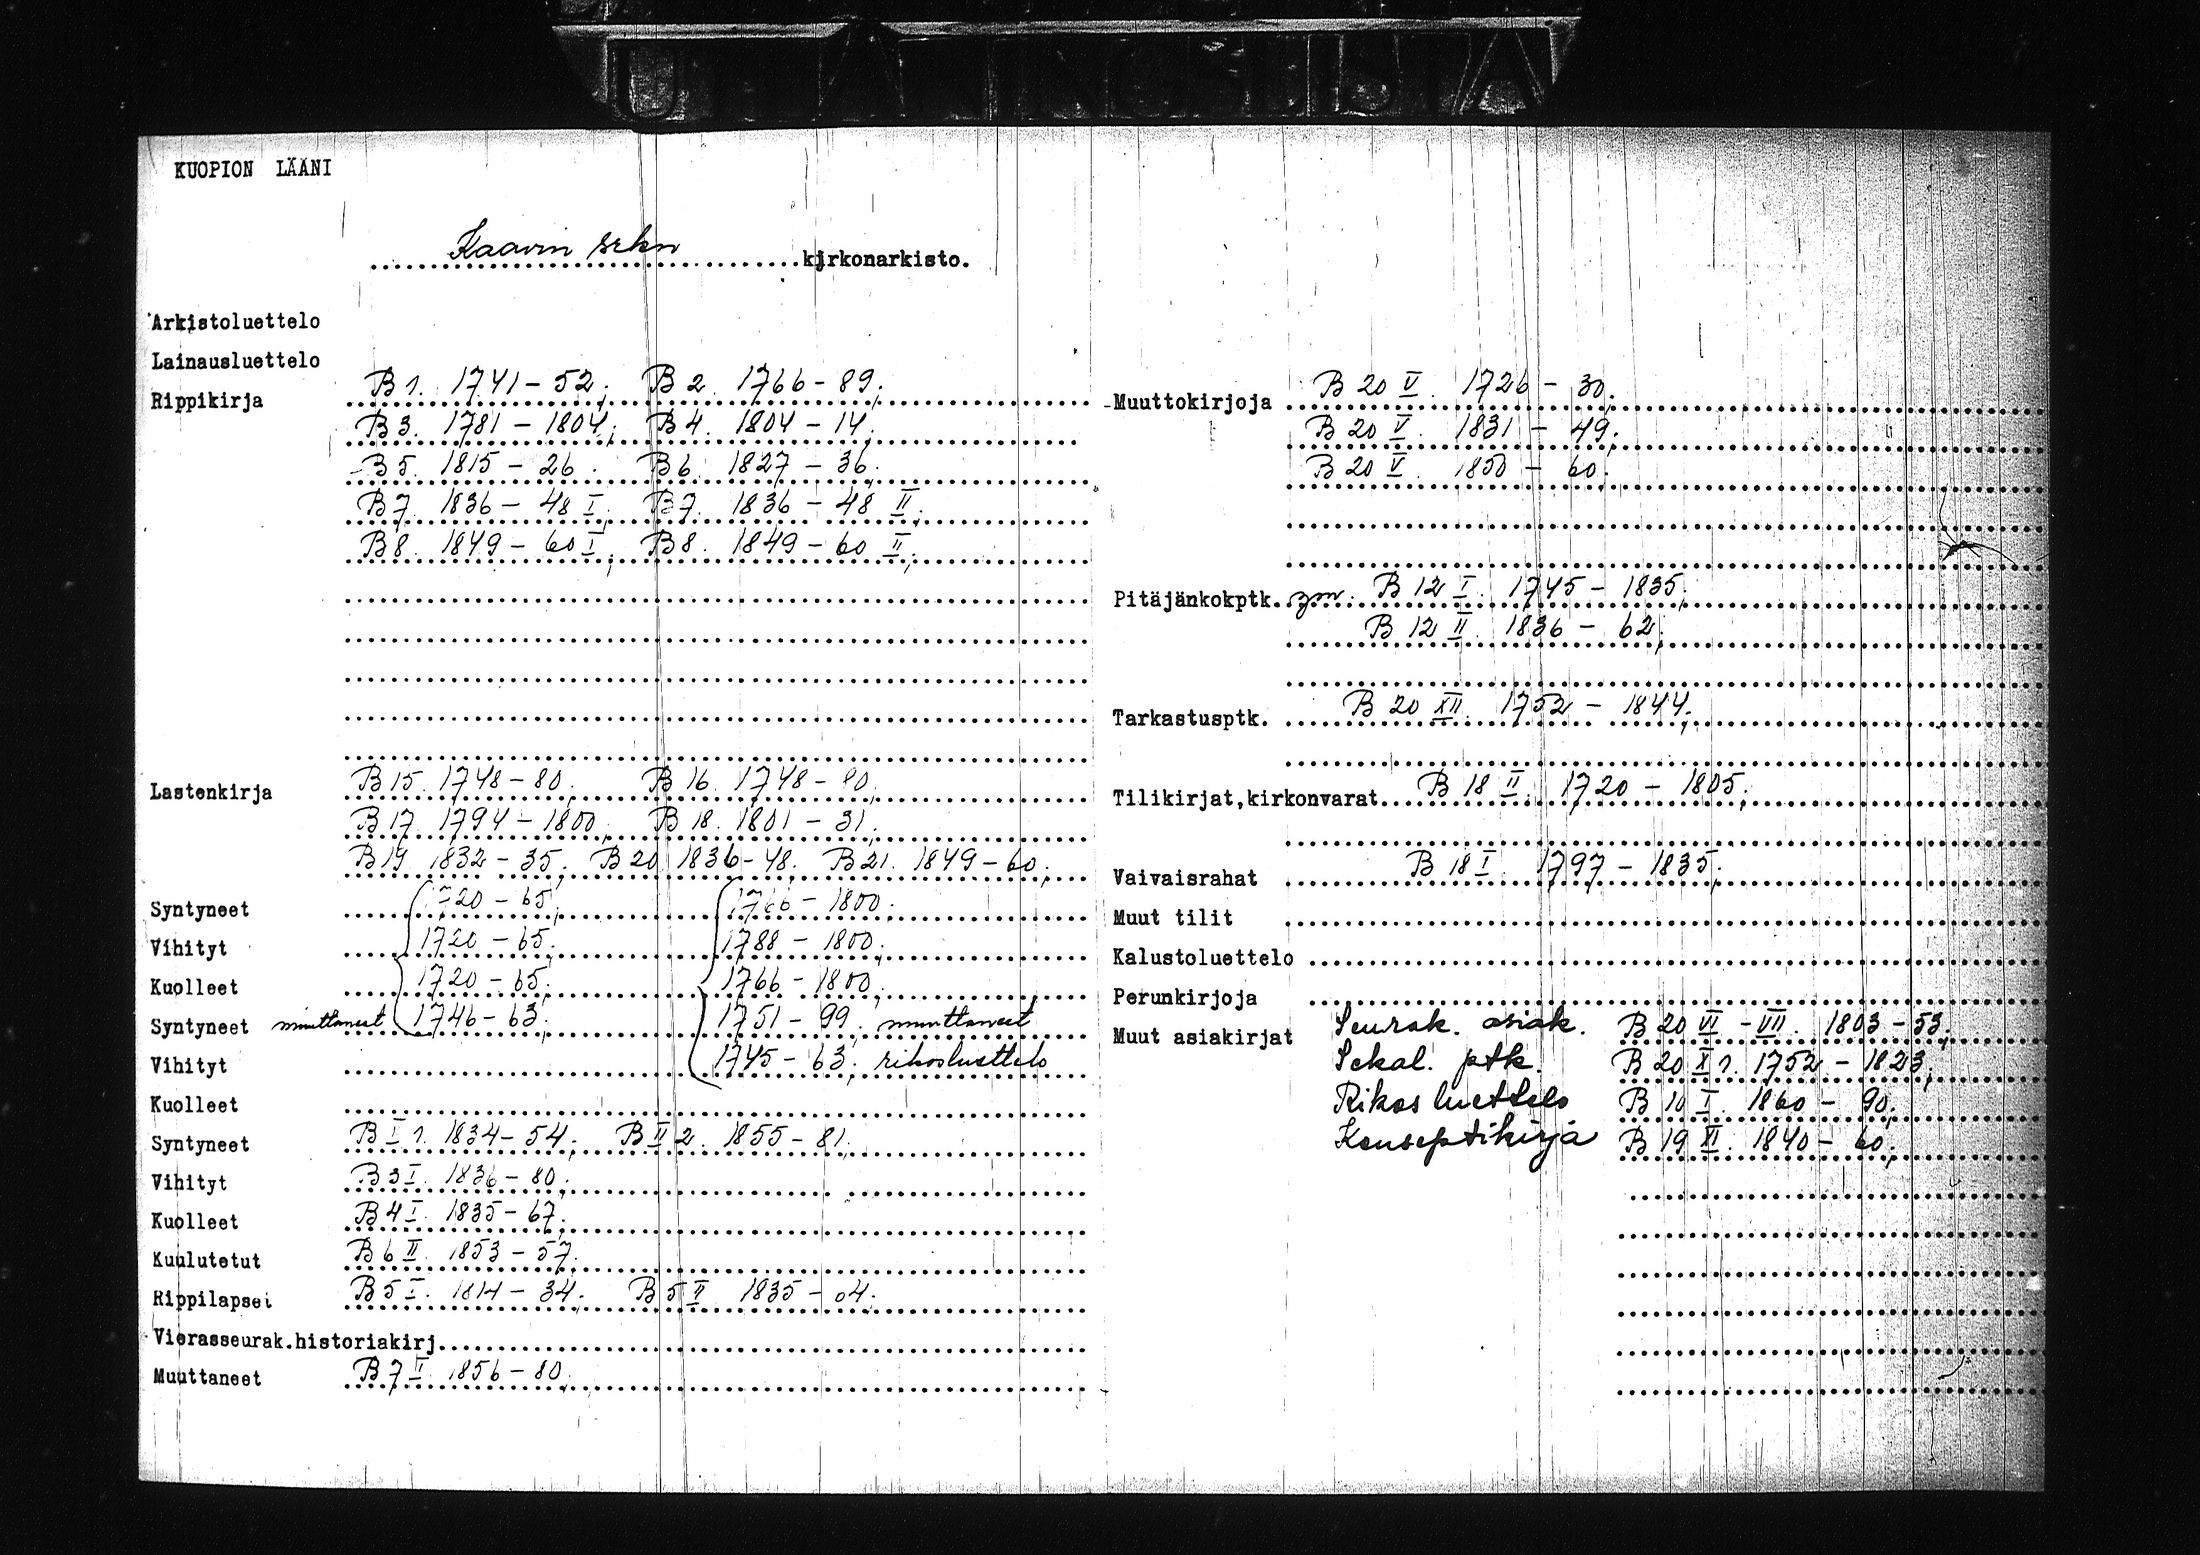 KUOPION LÄÄNI
Kaavin srkn kirkonarkisto.
Arkistoluettelo
Lainausluettelo
Rippikirja B 1. 1741 - 52; B 2. 1766 - 89;
B 3. 1781 - 1804; B 4. 1804 - 14;
B 5. 1815 - 26. B 6. 1827 - 36;
B 7. 1836 - 48 I; B 7. 1836 - 48 II;
B 8. 1849 - 60 I; B 8. 1849 - 60 II;
Lastenkirja B 15. 1748 - 80; B 16. 1748 - 80;
B 17. 1794 - 1800; B 18. 1801 - 31;
B 19. 1832 - 35; B 20. 1836 - 48; B 21. 1849 - 60;
Syntyneet 1720 - 65; 1766 - 1800;
Vihityt 1720 - 65; 1788 - 1800;
Kuolleet 1720 - 65; 1766 - 1800;
Syntyneet muuttaneet 1746 - 63; 1751 - 99; muuttaneet
Vihityt 1745 - 63; rikosluettelo
Kuolleet
Syntyneet B I 1. 1834 - 54; B II 2. 1855 - 81;
Vihityt B 3 I. 1836 - 80;
Kuolleet B 4 I. 1835 - 67;
Kuulutetut B 6 II. 1853 - 57;
Rippilapset B 5 I. 1814 - 34; B 5 II. 1835 - 64;
Vierasseurak.historiakirj.
Muuttaneet B 7 II. 1856 - 80;
Muuttokirjoja B 20 V. 1726 - 30;
B 20 V. 1831 - 49;
B 20 V. 1850 - 60;
Pitäjänkokptk. ym. B 12 I. 1745 - 1835;
B 12 II. 1836 - 62;
Tarkastusptk. B 20 XII. 1752 - 1844;
Tilikirjat,kirkonvarat B 18 II. 1720 - 1805;
Vaivaisrahat B 18 I. 1797 - 1835;
Muut tilit
Kalustoluettelo
Perunkirjoja
Muut asiakirjat Seurak. asiak. B 20 VI - VII. 1803 - 53;
Sekal. ptk. B 20 X 1. 1752 - 1823;
Rikosluettelo B 10 I. 1860 - 90;
Konseptikirja B 19 XI. 1840 - 60;